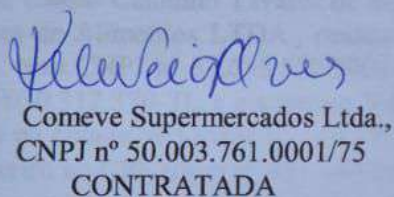 Comeve Supermercados Ltda.,
CNPJ nº 50.003.761.0001/75
CONTRATADA